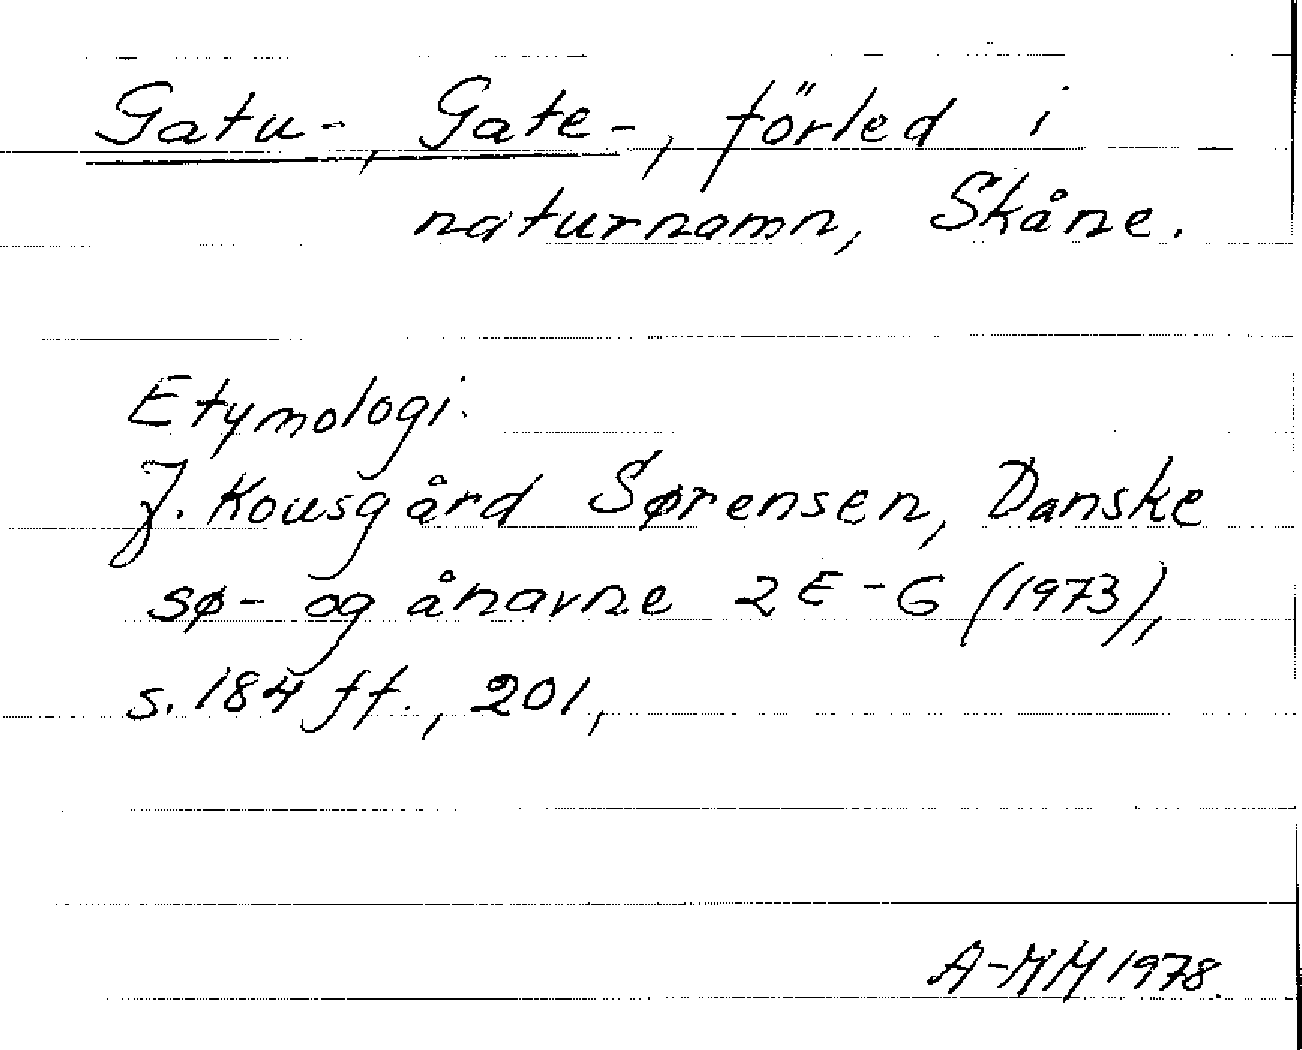 Gatu-, Gate-, förled i
naturnamn, Skåne.
Etymologi:
J. Kousgård Sørensen, Danske
sø- og ånavne 2 E-G (1973),
s. 184 ff., 201,
A-MM 1978.